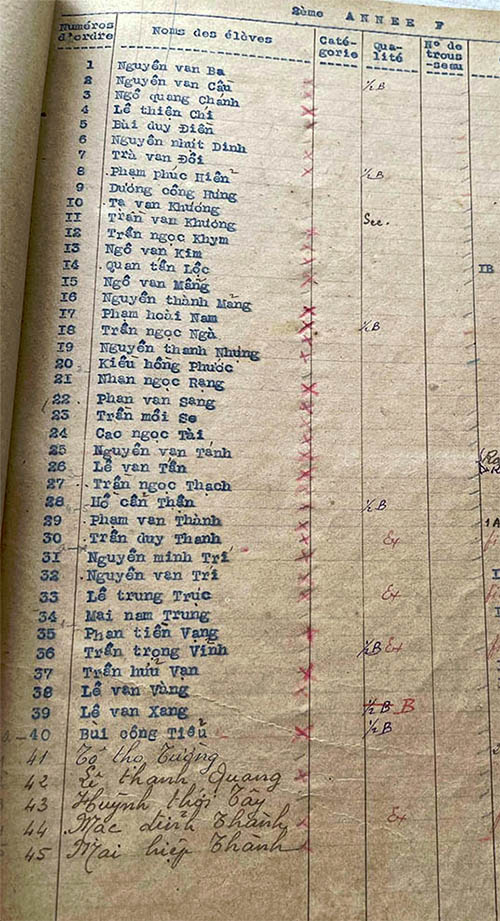 2ème ANNEE F
Numéros d'ordre Noms des élèves Caté- gorie Qua- lité N° de trous seau
1 Nguyễn van Ba
2 Nguyễn van Cầu ½B
3 Ngô quang Chánh
4 Lê thiện Chí
5 Bùi duy Điền
6 Nguyễn nhứt Dinh
7 Trà van Đôi
8 Phạm phúc Hiển ½B
9 Dương công Hưng
10 Tạ van Khương
11 Trần van Khương
12 Trần ngọc Khym
13 Ngô van Kim
14 Quan tấn Lộc 1B
15 Ngô van Mãng
16 Nguyễn thành Mãng
17 Phạm hoài Nam
18 Trần ngọc Ngà ½B
19 Nguyễn thanh Nhựng
20 Kiều hồng Phước
21 Nhan ngọc Rạng
22 Phan van Sang
23 Trần môi Se
24 Cao ngọc Tài
25 Nguyễn van Tánh
26 Lê van Tấn
27 Trần ngọc Thạch
28 Hồ cẩn Thận ½B
29 Phạm van Thành 1A
30 Trần duy Thanh Ex
31 Nguyễn minh Trí
32 Nguyễn van Trí
33 Lê trung Trực Ex
34 Mai nam Trung
35 Phan tiến Vạng
36 Trần trọng Vĩnh ½B Ex
37 Trần hữu Vạn
38 Lê van Vàng
39 Lê van Xang ½B B
40 Bùi công Tiểu ½B
41 Tô thọ Tường
42 Lê thanh Quang
43 Huỳnh thới Tây
44 Mạc đình Thành Ex
45 Mai hiệp Thành